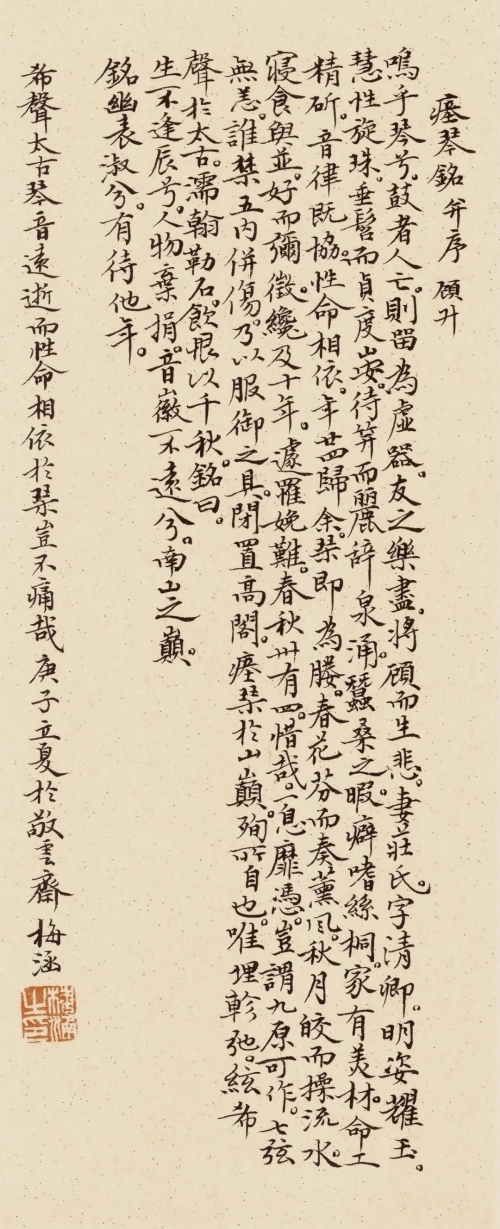 瘞琴銘并序 顧升
嗚乎琴兮。鼓者人亡。則留為虛器。友之樂盡。將顧而生悲。妻莊氏。字清卿。明姿耀玉。
慧性旋珠。垂髫而貞度山安。待筓而麗辭泉涌。蠶桑之暇。癖嗜絲桐。家有美材。命工
精斫。音律既協。性命相依。年廿四歸余。琹即為媵。春花芬而奏薰風。秋月皎而操流水。
寢食與並。好而彌徵。纔及十年。遽罹娩難。春秋卅有四。惜哉。一息靡憑。豈謂九原可作。七弦
無恙。誰禁五內併傷。乃以服御之具。閉置高閣。瘞琹於山巔。殉所自也。唯埋軫弛絃。希
聲於太古。濡翰勒石。飲恨以千秋。銘曰。
生不逢辰兮。人物棄捐。音徽不遠兮。南山之巔。
銘幽表淑兮。有待他年。
希聲太古琴音遠逝而性命相依於琹豈不痛哉 庚子立夏於敬雲齋 梅涵